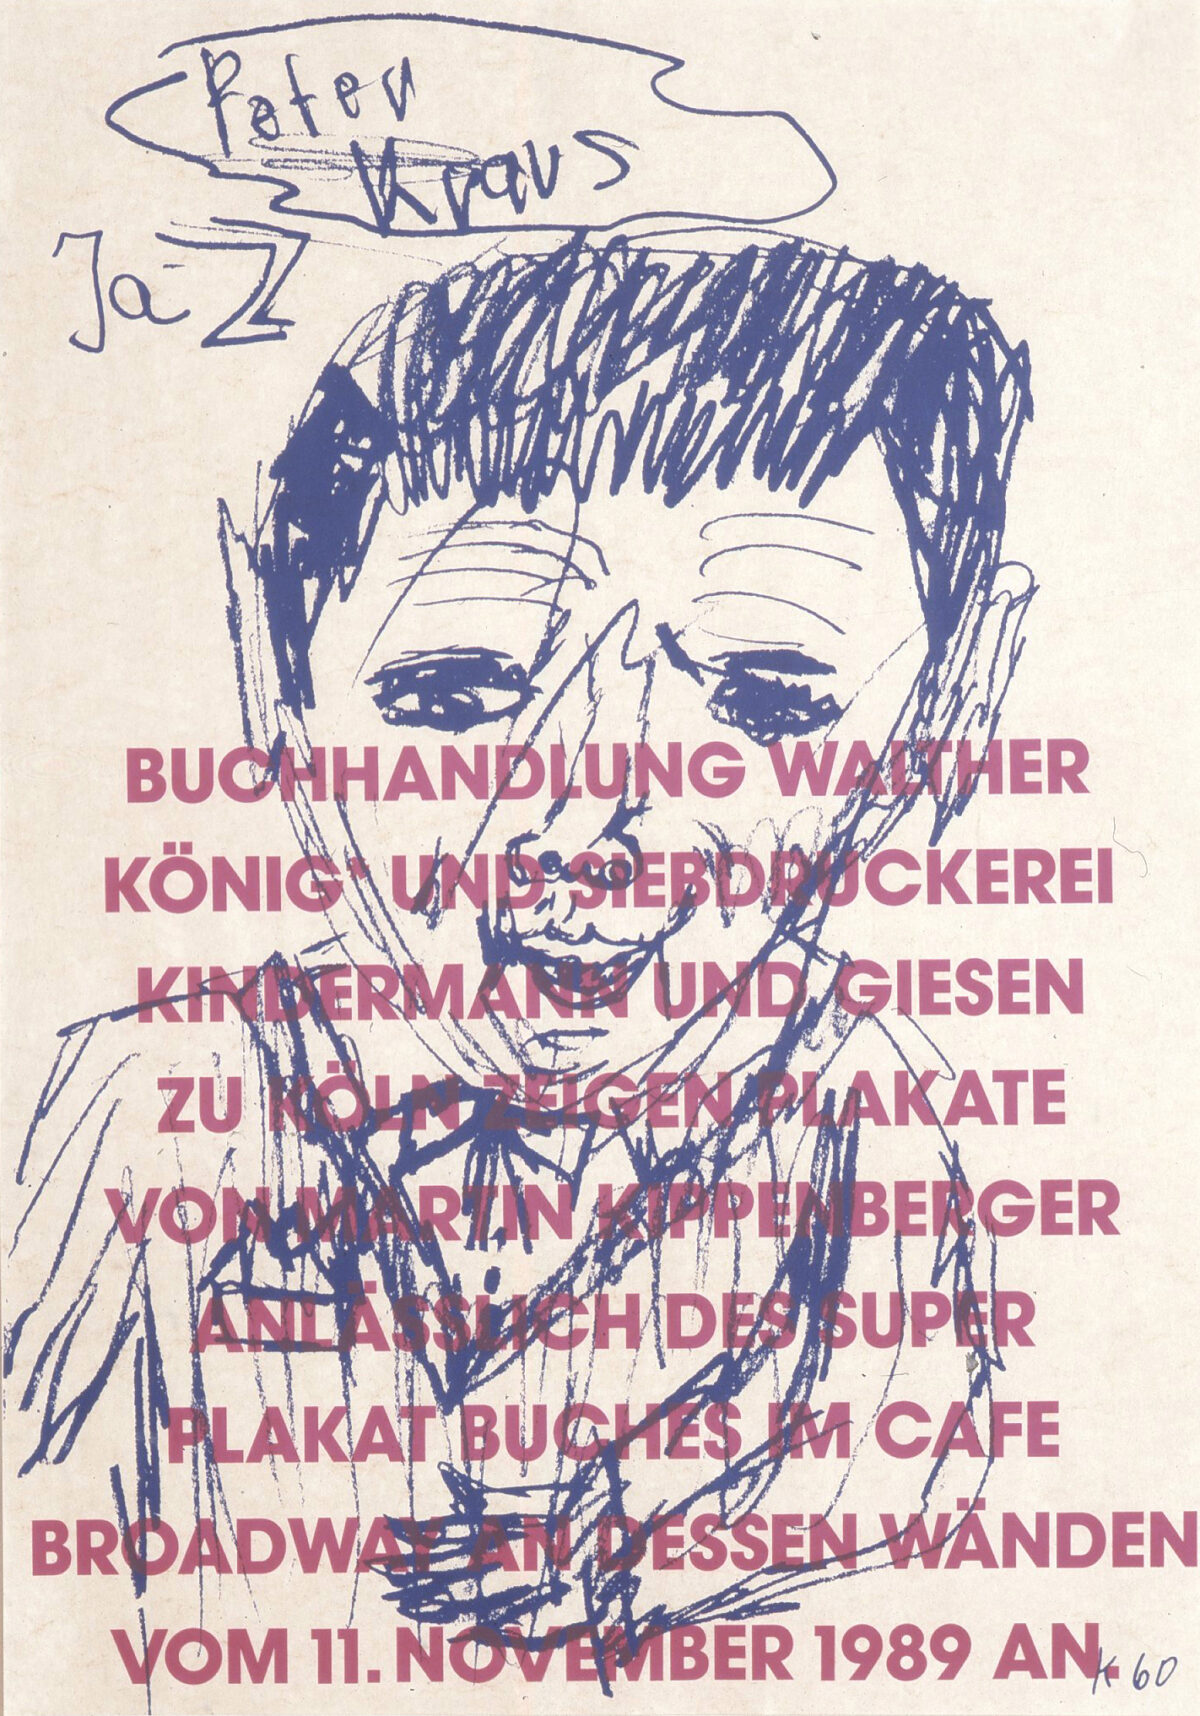 Peter
Kraus
Ja-Z
BUCHHANDLUNG WALTHER
KÖNIG' UND SIEBDRUCKEREI
KINDERMANN UND GIESEN
ZU KÖLN ZEIGEN PLAKATE
VON MARTIN KIPPENBERGER
ANLÄSSLICH DES SUPER
PLAKAT BUCHES IM CAFE
BROADWAY AN DESSEN WÄNDEN
VOM 11. NOVEMBER 1989 AN.
K 60